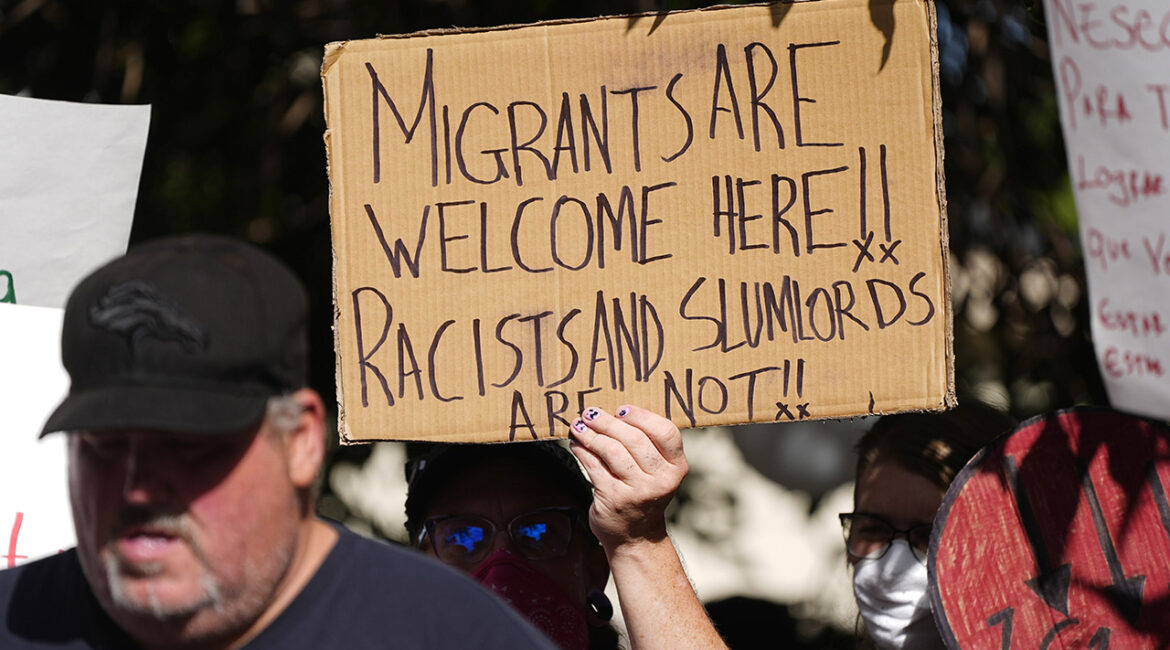 MIGRANTS ARE
WELCOME HERE!!
RACISTS AND SLUMLORDS
ARE NOT!!
NESC
PARA T
LOGRAR
QUE
ESTA
ESTA
161